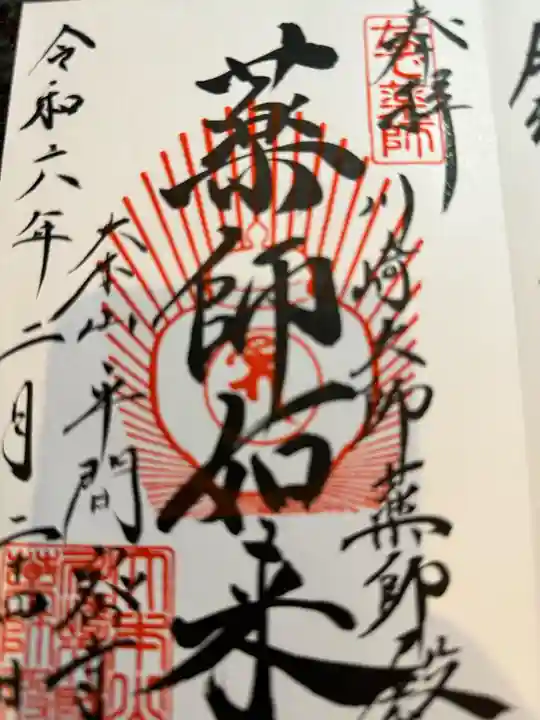 奉拝
川崎大師薬師殿
薬師如来
大本山平間寺
令和六年二月二十四日